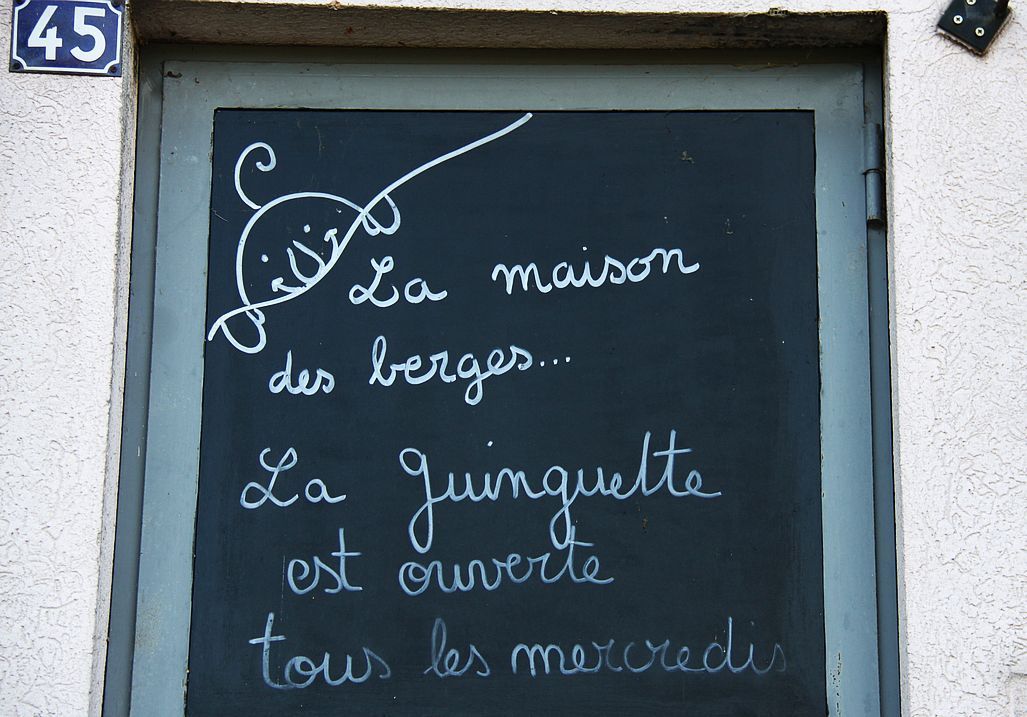 45
La maison
des berges...
La Guinguette
est ouverte
tous les mercredis